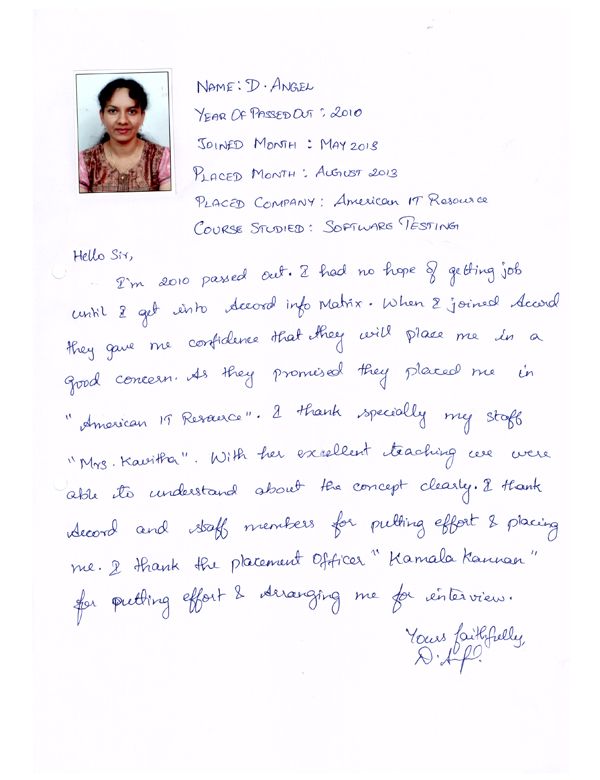 NAME: D. ANGEL
YEAR OF PASSED OUT : 2010
JOINED MONTH : MAY 2013
PLACED MONTH : AUGUST 2013
PLACED COMPANY : American IT Resource
COURSE STUDIED : SOFTWARE TESTING
Hello Sir,
I'm 2010 passed out. I had no hope of getting job
until I get into Accord info Matrix. When I joined Accord
they gave me confidence that they will place me in a
good concern. As they promised they placed me in
"American IT Resource". I thank specially my staff
"Mrs. Kavitha". With her excellent teaching we were
able to understand about the concept clearly. I thank
Accord and staff members for putting effort & placing
me. I thank the placement Officer "Kamala Kannan"
for putting effort & Arranging me for interview.
Yours faithfully,
D. Angel.